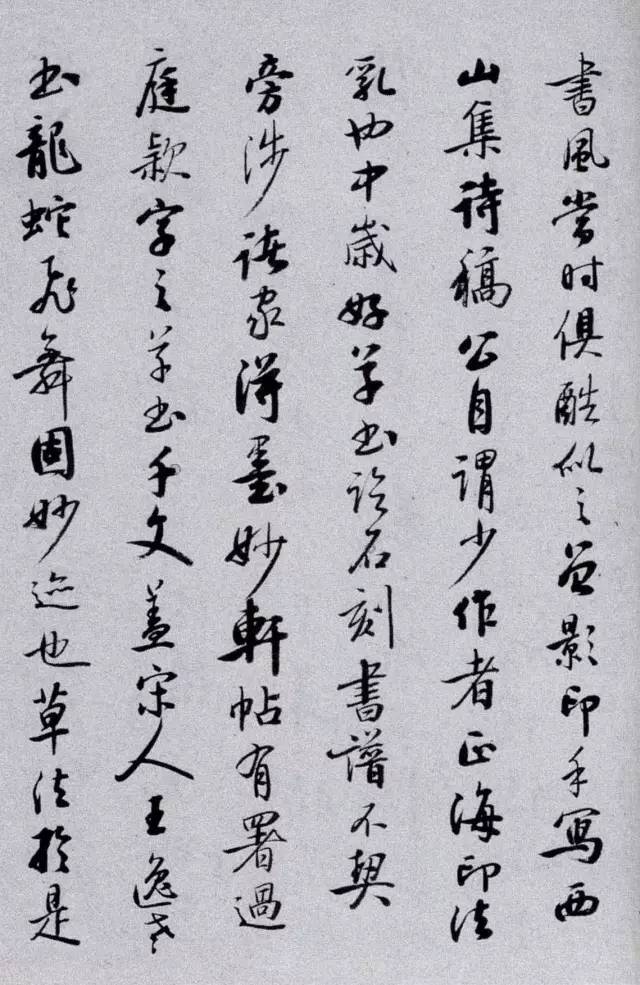 書風當时俱酷似之曾影印手寫西
山集诗稿公自謂少作者正海印法
乳也中歲好草书石刻書譜不契
旁涉諸家得墨妙軒帖有署過
庭款字之草书千文蓋宋人王逸老
书龍蛇飛舞固妙迹也草法於是